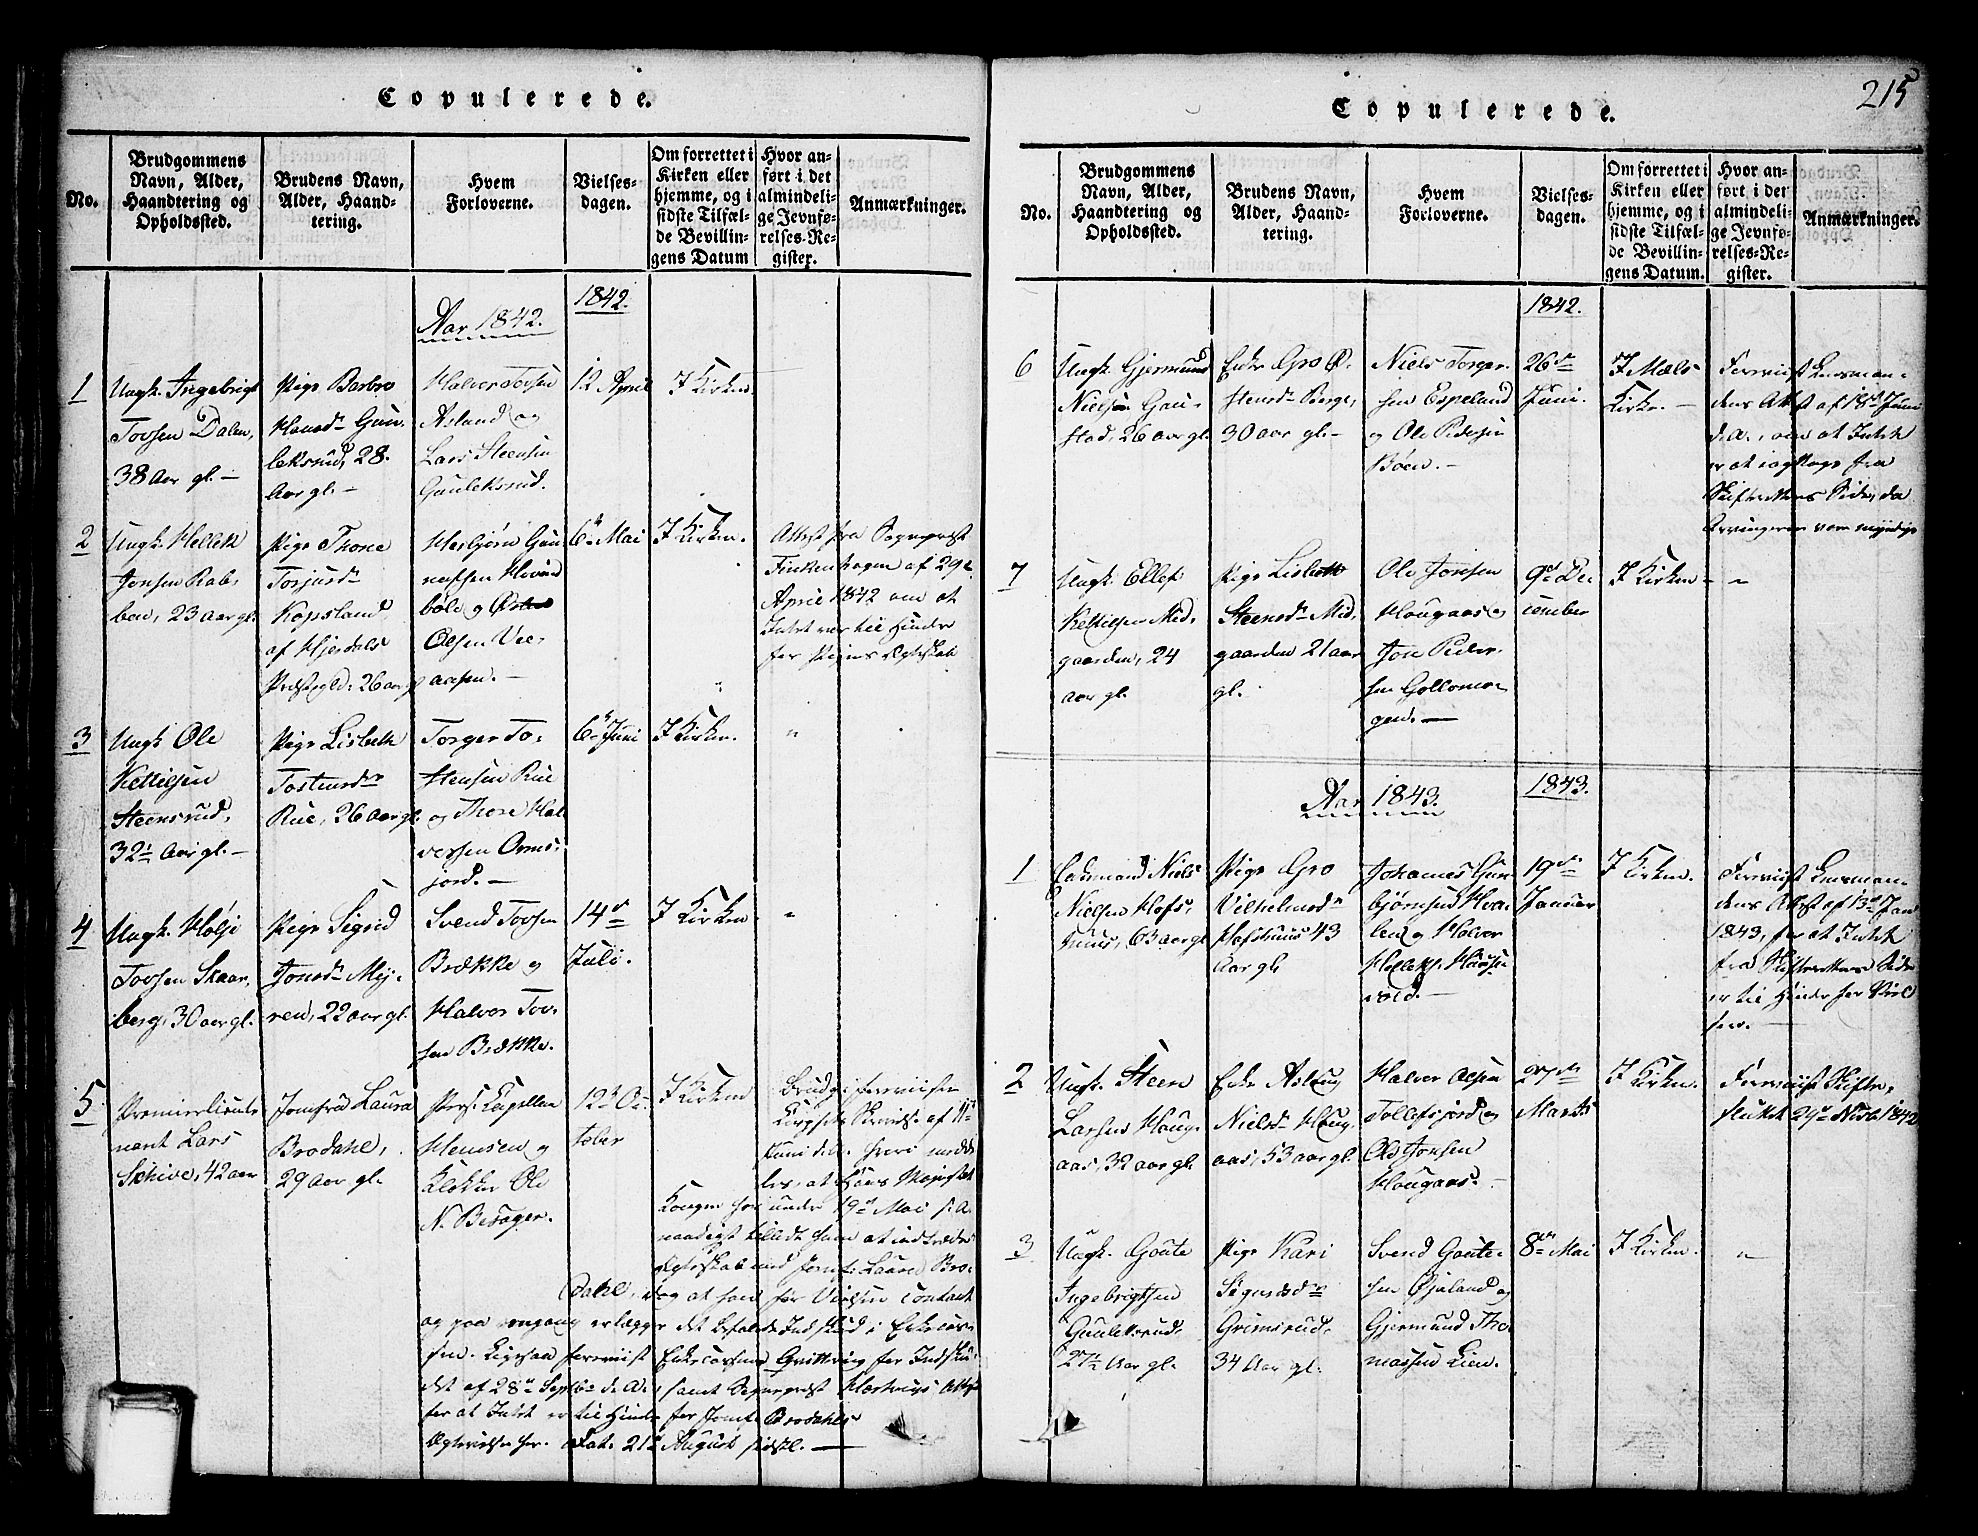 Copulerede.
No.
Brudgommens
Navn, Alder,
Haandtering og
Opholdssted.
Brudens Navn,
Alder, Haand-
tering.
Hvem
Forloverne.
Vielses-
dagen.
Om forrettet i
Kirken eller
hjemme, og i
sidste Tilfæl-
de Bevillin-
gens Datum
Hvor an-
ført i det
almindeli-
ge Jevnfø-
relses-Re-
gister.
Anmærkninger.
Aar 1842.
1842.
1
Ungk. Ingebrigt
Tovsen Dalen,
38 Aar gl.
Pige Barbro
Hansd. Gun-
leksrud, 28
Aar gl.
Halvor Tovsen
Asland og
Lars Steensen
Gunleksrud.
12 April
I Kirken
2
Ungk. Hellek
Jonsen Rab-
ben, 23 aar gl.
Pige Thone
Torjusd.
Kopsland
af Hjerdals
Præstegld. 26 aar gl
Olsen Vee-
aasen.
6 Mai
I Kirken.
Attest fra Sognepræst
Finkenhagen af 29
April 1842 om at
Intet var til Hinder
for Pigens Ægteskab
3
Ungk Ole
Kettilsen
Steensrud,
32½ Aar gl.
Pige Lisbeth
Tostensdr
Rue, 26 aar gl.
Torger To-
stensen Rue
og Thore Hal
vorsen Orms-
jord.
6 Juni
I Kirken.
4
Ungk. Hølje
Tovsen Skaar-
berg, 30 aar gl.
Pige Sigrid
Jonsd. My-
ren, 22 aar gl.
Svend Tovsen
Brække og
Halvor Tov-
sen Brække.
14
Juli.
I Kirken
5
Premierlieute
nant Lars
Schive, 42 aar
Jomfru Laura
Brodahl,
29 Aar gl.
Pers. Capellan
Hemsen og
Klokker Ole
N. Besager.
12 Oc
tober
I Kirken
Brudg. foreviiste
les, at Hans Majestæt
Kongen har under 19 Mai d. A.
naadigst tilladt ham at indtræde
Ægteskab med Jomf. Laura Bro-
dahl, og at han før Vielsen contant
og paa engang erlægger det befalede Indskud i Enkecas-
sen. Ligesaa foreviist Enkecassens Qvittering for Indsku-
det af 28 Septbr d. A., samt Sognepræst Hartvigs Attest
for at Intet er til Hinder for Jomf. Brodahls
Dat. 21 August sidstl.
215
Copulerede.
No.
Brudgommens
Navn, Alder,
Haandtering og
Opholdssted.
Brudens Navn,
Alder, Haand-
tering.
Hvem
Forloverne.
Vielses-
dagen.
Om forrettet i
Kirken eller
hjemme, og i
sidste Tilfæl-
de Bevillin-
gens Datum.
Hvor an-
ført i det
almindeli-
ge Jevnfø-
relses-Re-
gister.
Anmærkninger.
1842.
6
Ungk. Gjermund
Nielsen Gau-
stad, 26 aar gl.
Enke Gro Ø-
stensdr Berge,
30 aar gl.
Niels Torger-
sen Espeland
og Ole Pedersen
Böen.
26
Juni.
I Mæls
Kirke.
Foreviist Lensman-
dens Attest af 18 Juni
d. A., om at Intet
er at iagttage fra
Skifterettens Side, da
Arvingerne vare myndige
7
Ungk. Ellef
Kettilsen Mid-
gaarden, 24
aar gl.
Pige Lisbeth
Steensdr Mid-
gaarden 21 aar
gl.
Ole Jonsen
Hougaas og
Jon Peder-
sen Gollomo-
gen.
9 De
cember
I Kirken
Aar 1843.
1843.
1
Enkemand Niels
Nielsen Hofs-
huus, 63 aar gl
Pige Gro
Vilhelmsdr
Hofshuus 43
Aar gl.
Johannes Gun
bjørnsen Hva-
len og Halvor
vold.
19
Januar
I Kirken.
Foreviist Lensman-
dens Attest af 13 Jan
1843, for at Intet
fra Skifterettens Side
er til Hinder for Viel
sen.
2
Ungk. Steen
Larsen Houg-
aas, 32 aar gl.
Enke Aslaug
Nielsdr Houg-
aas, 53 aar gl.
Halvor Olsen
Tollefsjord og
Ole Jonsen
Hougaas.
27
Marts
I Kirken.
Foreviist Skifte-
slutt. 29 Novb. 1842
3
Ungk. Goute
Ingebrigtsen
Gunleksrud,
27½ Aar gl.
Pige Kari
Sigurdsdr
Grimsrud,
34 Aar gl.
Svend Goute-
sen Øyaland og
Gjermund Tho
massen Lien.
8 Mai
I Kirken.